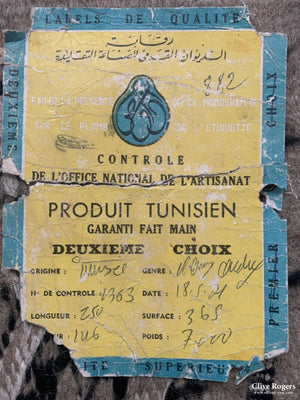 LABELS DE QUALITÉ
رقابة
الديوان القومي للصناعات التقليدية
882
EXIGER LA PRESENCE DE CE MONOGRAMME
SUR LE PLOMB DE L'ETIQUETTE
DEUXIEME
CHOIX
CONTROLE
DE L'OFFICE NATIONAL DE L'ARTISANAT
PRODUIT TUNISIEN
GARANTI FAIT MAIN
DEUXIEME CHOIX
ORIGINE : GENRE :
N° DE CONTROLE : 1363 DATE : 18.5.
LONGUEUR : 250 SURFACE : 365
UR : 146 POIDS : 7.000
PREMIER
ITE SUPERIEURE
Clive Rogers